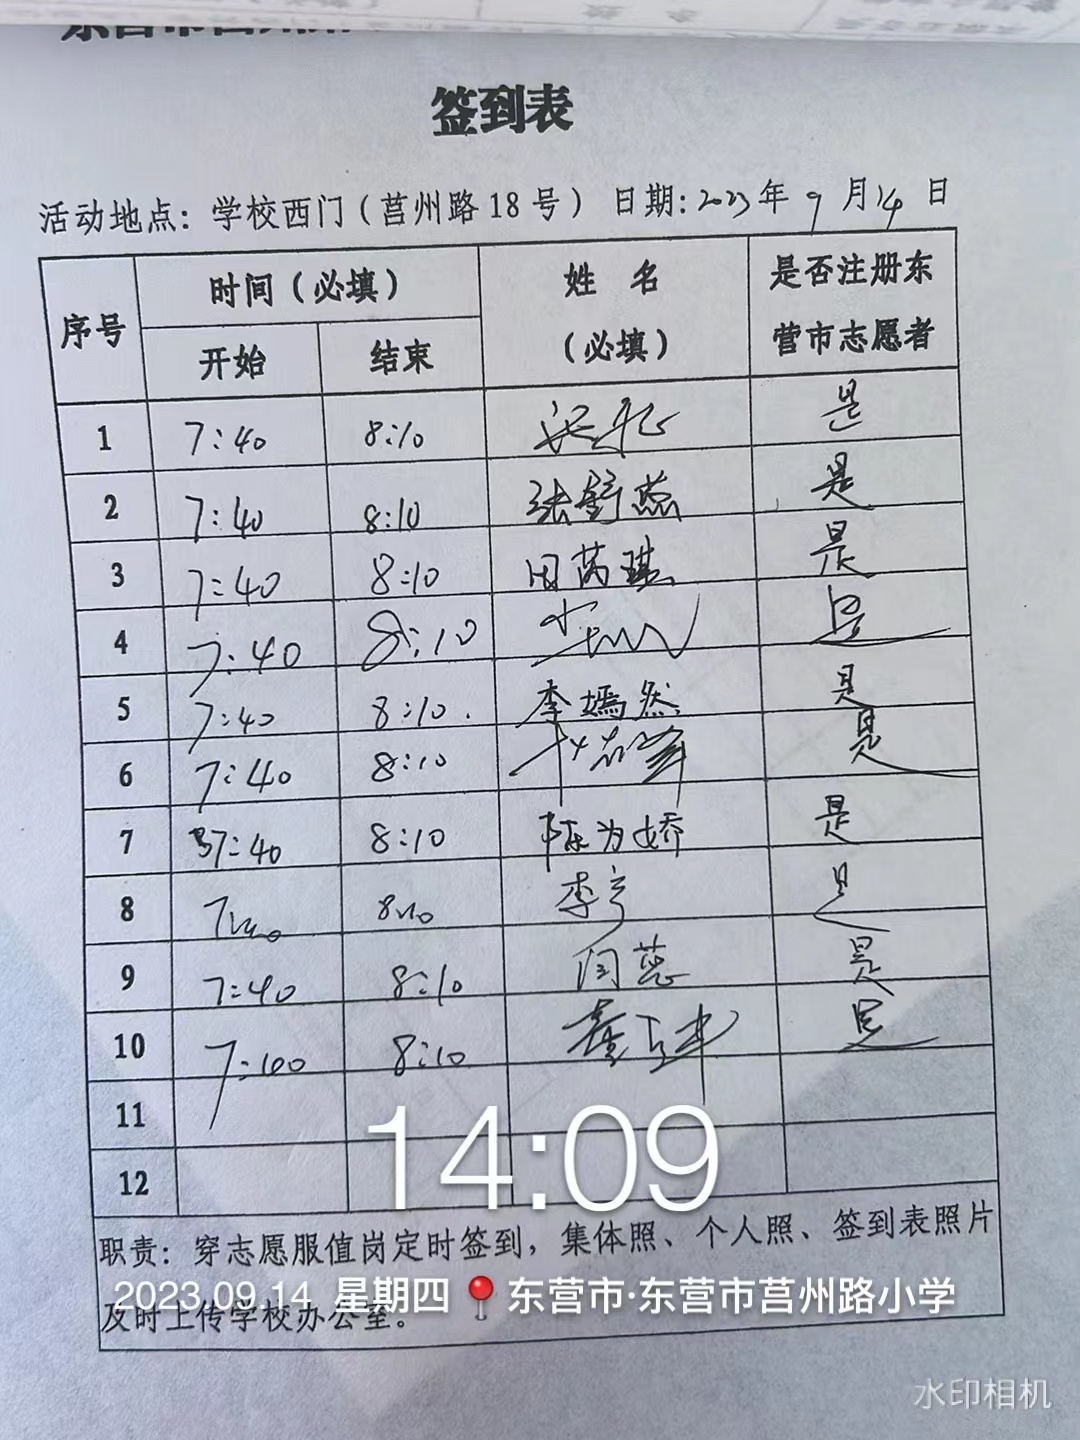 签到表
活动地点：学校西门（莒州路18号） 日期：2023年9月14日
序号 时间（必填） 姓 名（必填） 是否注册东营市志愿者
开始 结束
1 7:40 8:10 是
2 7:40 8:10 张舒蕊 是
3 7:40 8:10 田芮琪 是
4 7:40 8:10 是
5 7:40 8:10. 李嫣然 是
6 7:40 8:10 是
7 7:40 8:10 陈为娇 是
8 7:40 8:10 李宁 是
9 7:40 8:10 闫蕊 是
10 7:40 8:10 是
11
12
14:09
职责：穿志愿服值岗定时签到，集体照、个人照、签到表照片
及时上传学校办公室。
2023.09.14 星期四 东营市·东营市莒州路小学
水印相机